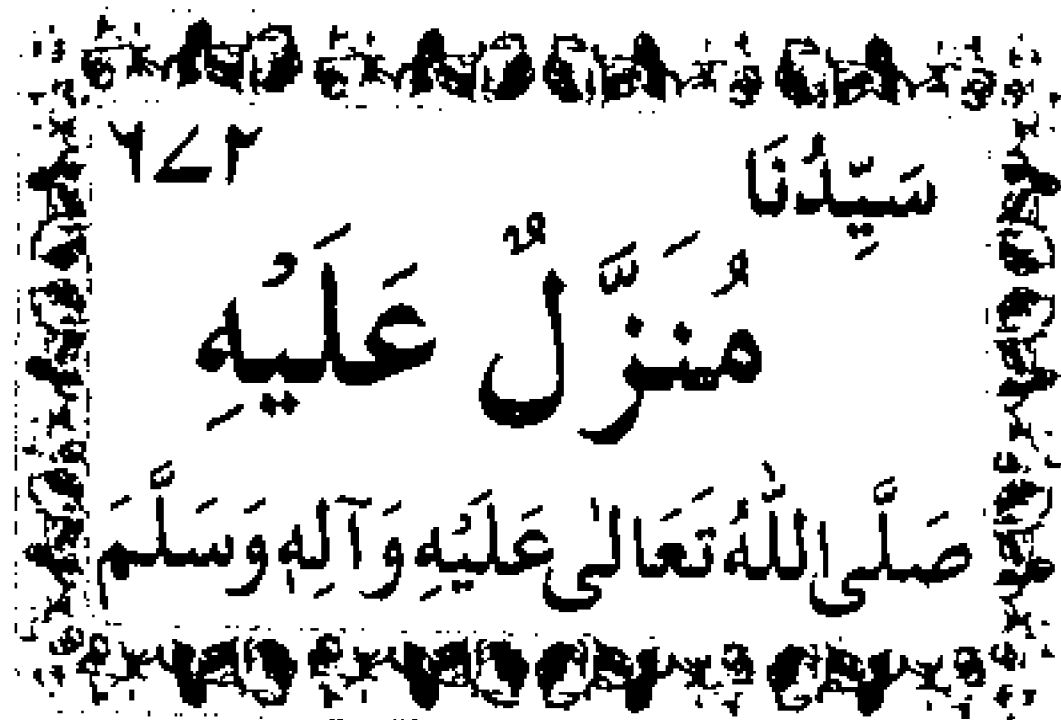 سَيِّدُنَا ٦٧٢
مُنَزَّلٌ عَلَيْهِ
صَلَّى اللّٰهُ تَعَالٰى عَلَيْهِ وَآلِهٖ وَسَلَّمَ